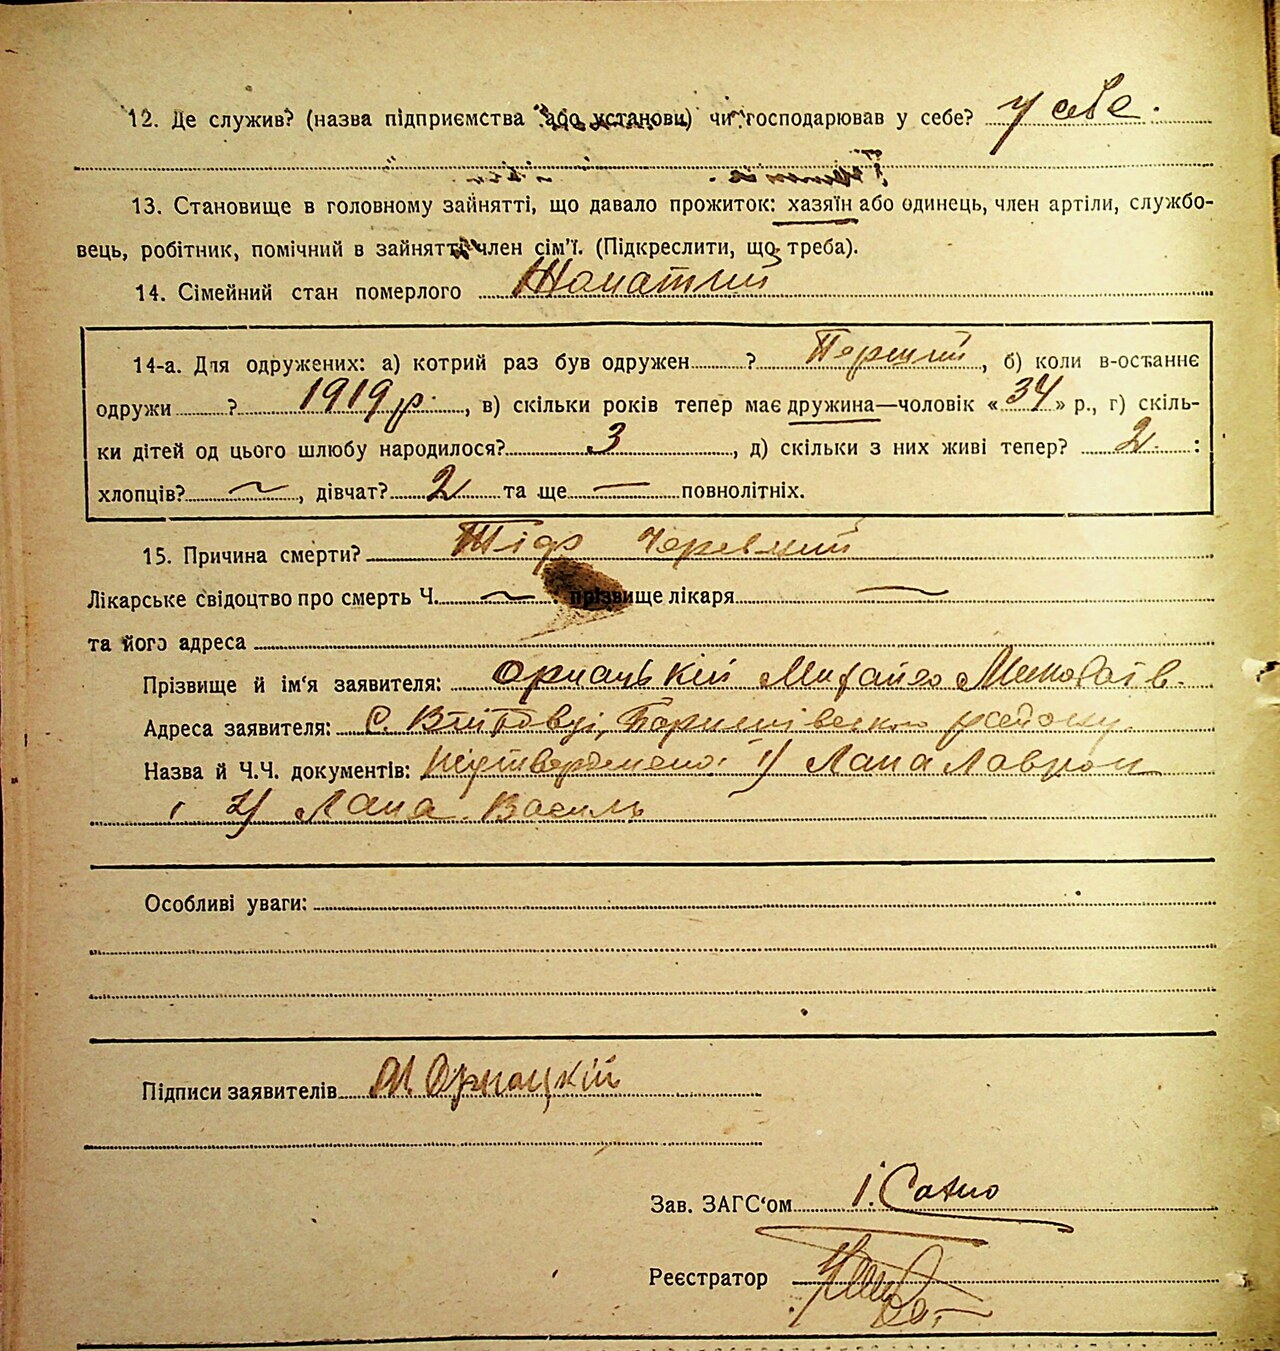 12. Де служив? (назва підприємства або установи) чи господарював у себе? у себе.
13. Становище в головному зайнятті, що давало прожиток: хазяїн або одинець, член артілі, службо-
вець, робітник, помічний в зайнятті член сім'ї. (Підкреслити, що треба).
14. Сімейний стан померлого Жонатий
14-а. Для одружених: а) котрий раз був одружен ? Перший, б) коли в-останнє
одружи ? 1919 р., в) скільки років тепер має дружина—чоловік «34» р., г) скіль-
ки дітей од цього шлюбу народилося? 3, д) скільки з них живі тепер? 2 :
хлопців? — , дівчат? 2 та ще — повнолітніх.
15. Причина смерти? Тіф Черевний
Лікарське свідоцтво про смерть Ч. — прізвище лікаря —
та його адреса
Прізвище й ім'я заявителя: Орнацькій Михайло
Адреса заявителя: С. Війтовці, району
Назва й Ч.Ч. документів: 1) Лапа Лаврон
і 2) Лапа Василь
Особливі уваги:
Підписи заявителів М. Орнацкій
Зав. ЗАГС'ом І.
Реєстратор